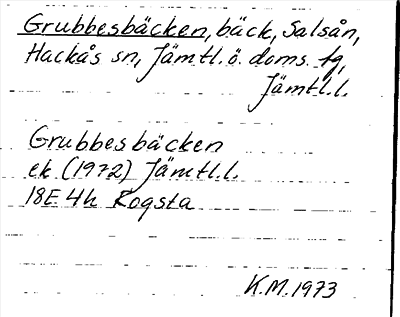 Grubbesbäcken, bäck, Salsån,
Hackås sn, Jämtl. ö. doms. tg,
Jämtl. l.
Grubbesbäcken
ek (1972) Jämtl. l.
18E 4h Rogsta
K.M. 1973